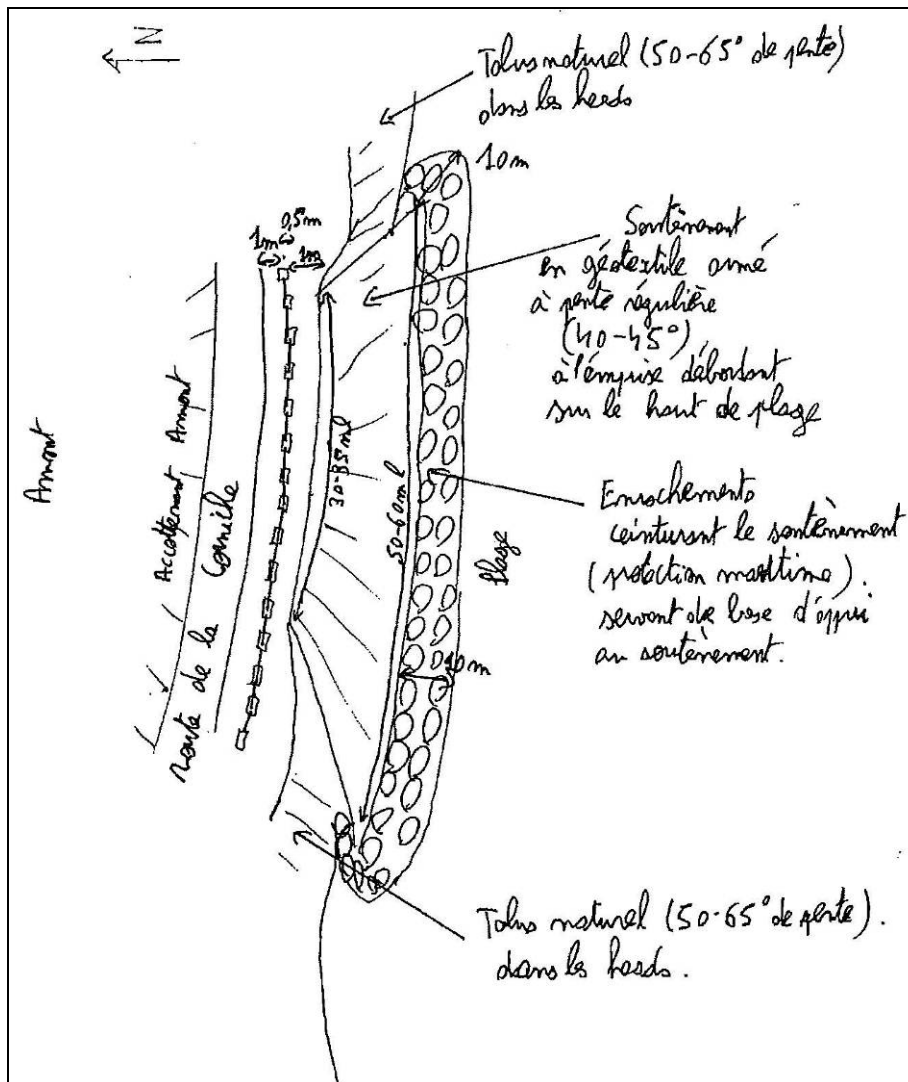 N
Talus naturel (50-65° de pente)
dans les heads
10m
0,5m
1m
1m
Soutènement
en géotextile armé
à pente régulière
(40-45°)
à l'emprise débordant
sur le haut de plage
Amont
Accottement Amont
route de la Corniche
30-35ml
50-60ml
Plage
Enrochements
ceinturant le soutènement
(protection maritime).
servant de base d'appui
au soutènement.
10m
Talus naturel (50-65° de pente).
dans les heads.